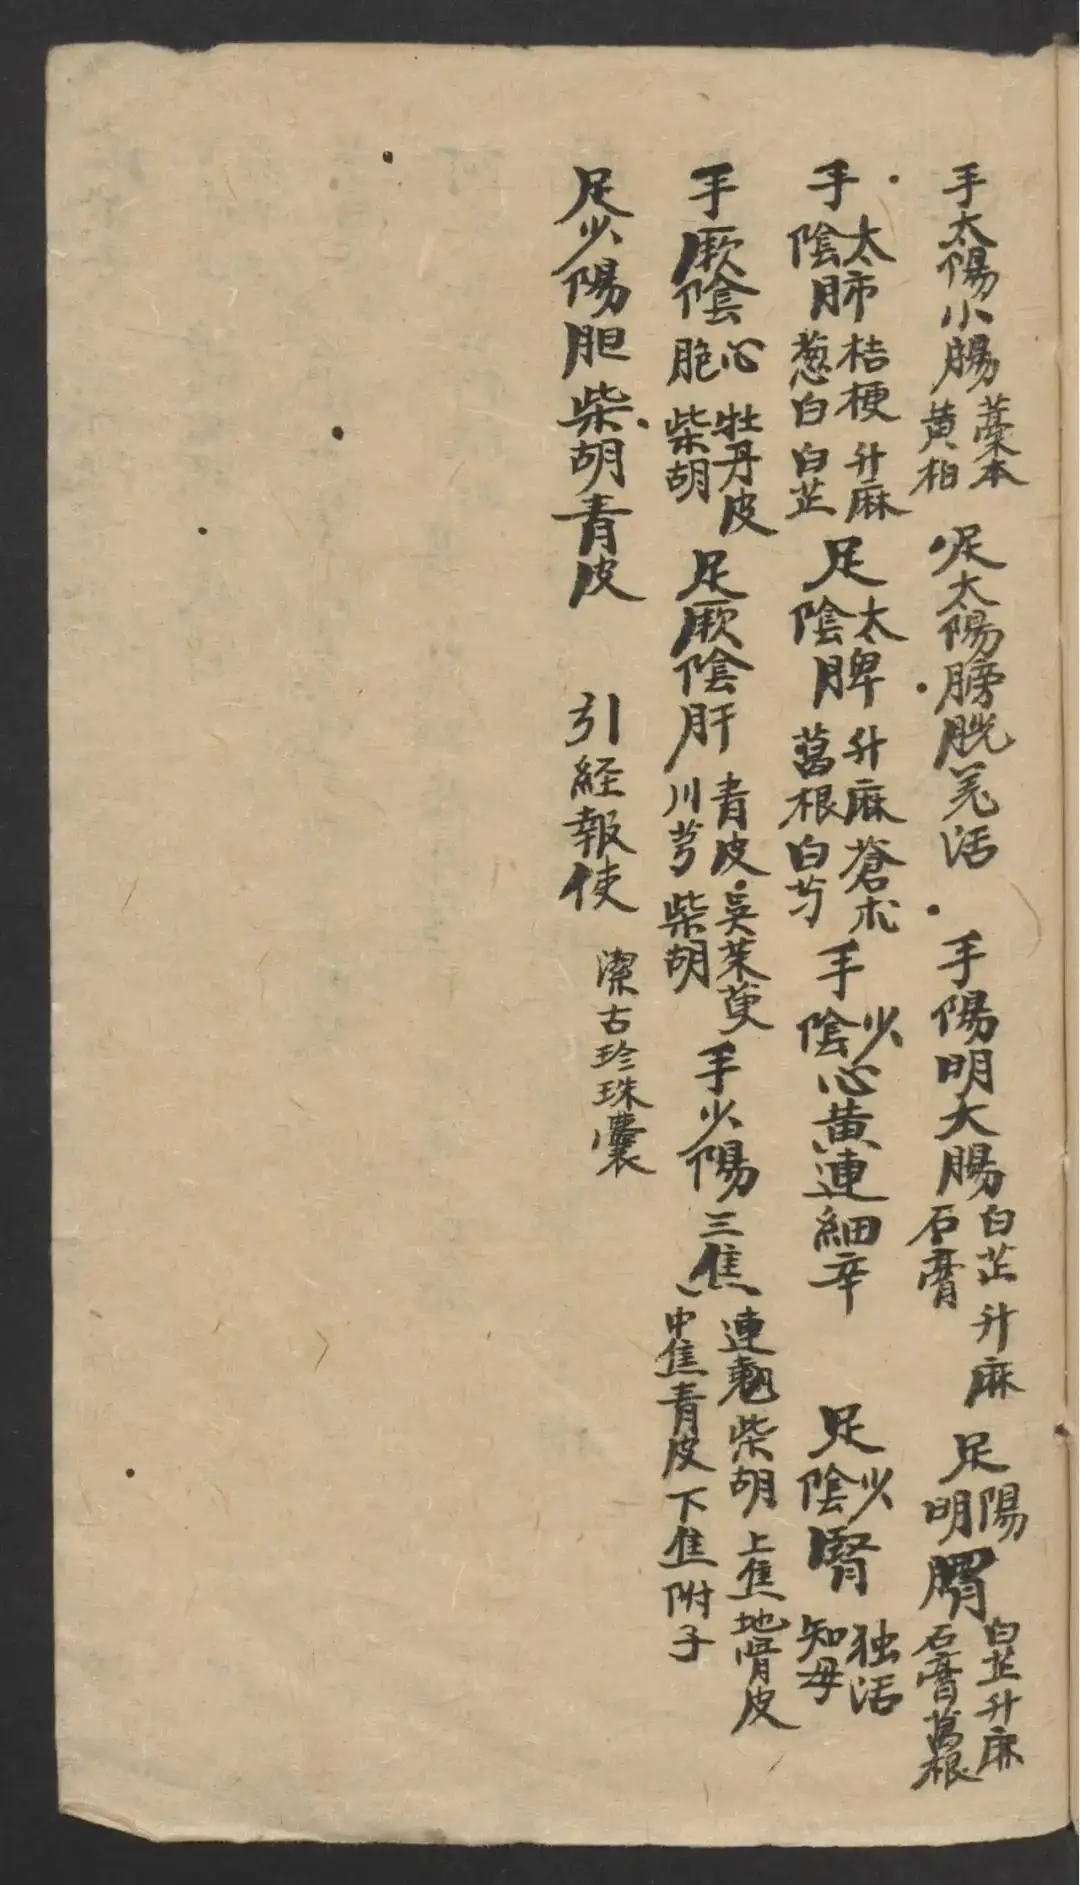 手太陽小腸藁本黄柏 足太陽膀胱羌活 手陽明大腸白芷升麻石膏 足陽明胃白芷升麻石膏葛根
手太陰肺桔梗升麻葱白白芷 足太陰脾升麻蒼朮葛根白芍 手少陰心黄連細辛 足少陰腎独活知母
手厥陰心胞牡丹皮柴胡 足厥陰肝青皮吳茱萸川芎柴胡 手少陽三焦連翹柴胡上焦地骨皮中焦青皮下焦附子
足少陽胆柴胡青皮 引経報使 潔古珍珠囊